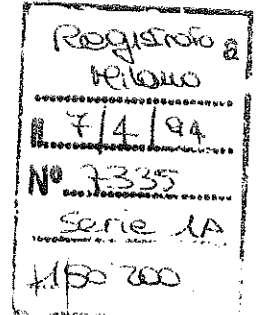 Registrato a
Milano
il 7/4/94
Nº 7335
Serie 1A
150 200